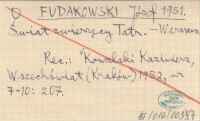 FUDAKOWSKI Józef 1951.
Świat zwierzęcy Tatr. – Warszawa
Rec.: Kowalski Kazimierz,
Wszechświat (Kraków) 1952, nr
7-10: 207.